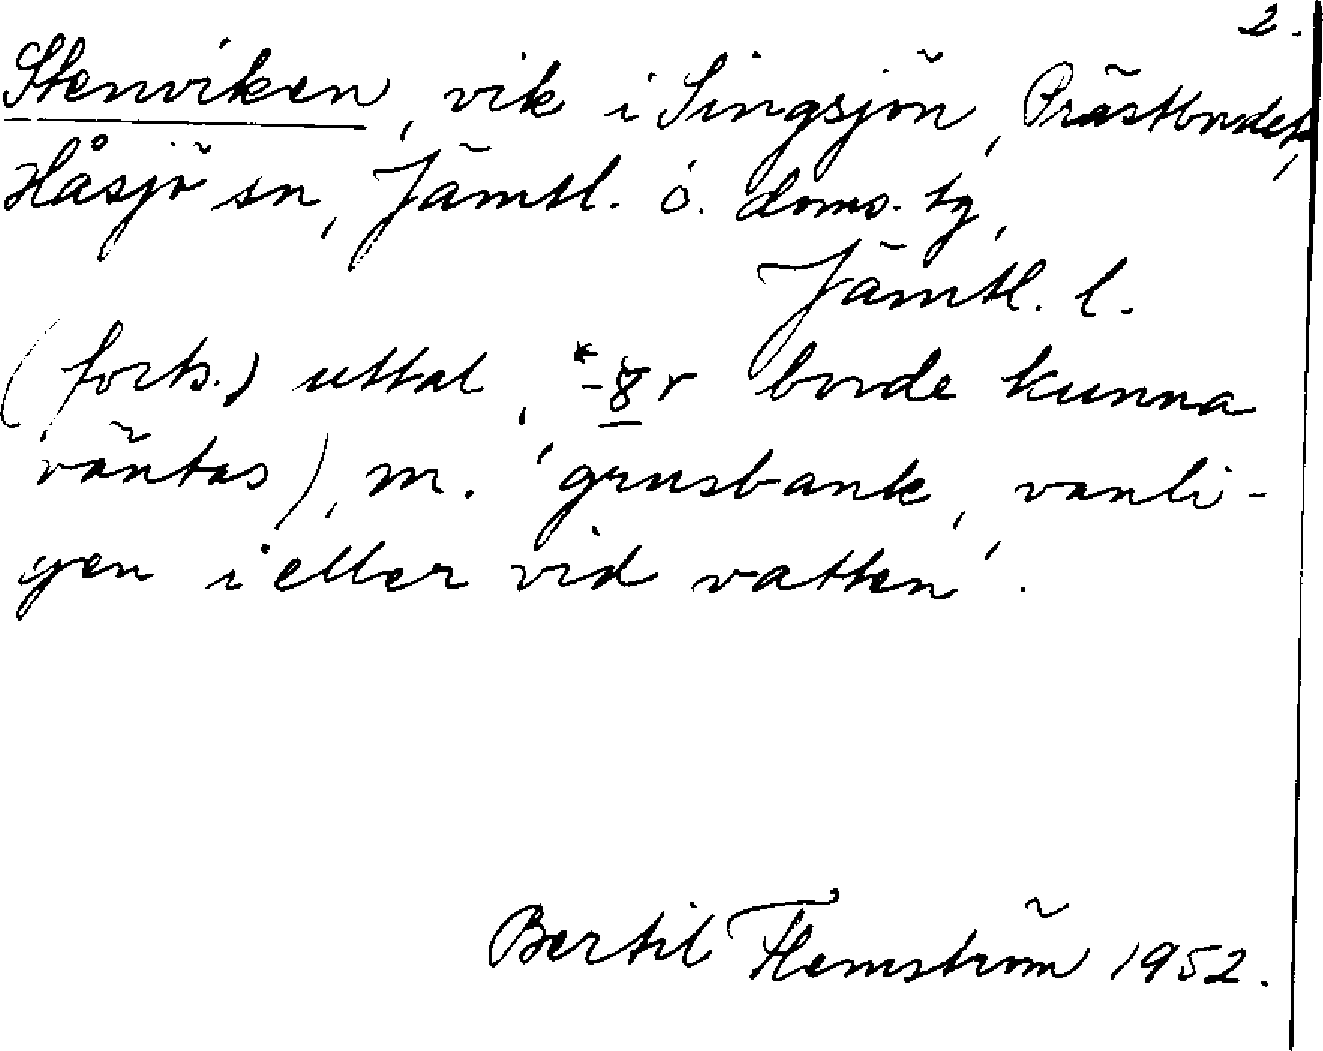 2.
Stenviken, vik i Singsjön, Prästbordet,
Håsjö sn, Jämtl. ö. doms. tg,
Jämtl. l.
(forts.) uttal, *-8r borde kunna
väntas), m. 'grusbank, vanli-
gen i eller vid vatten'.
Bertil Flemström 1952.